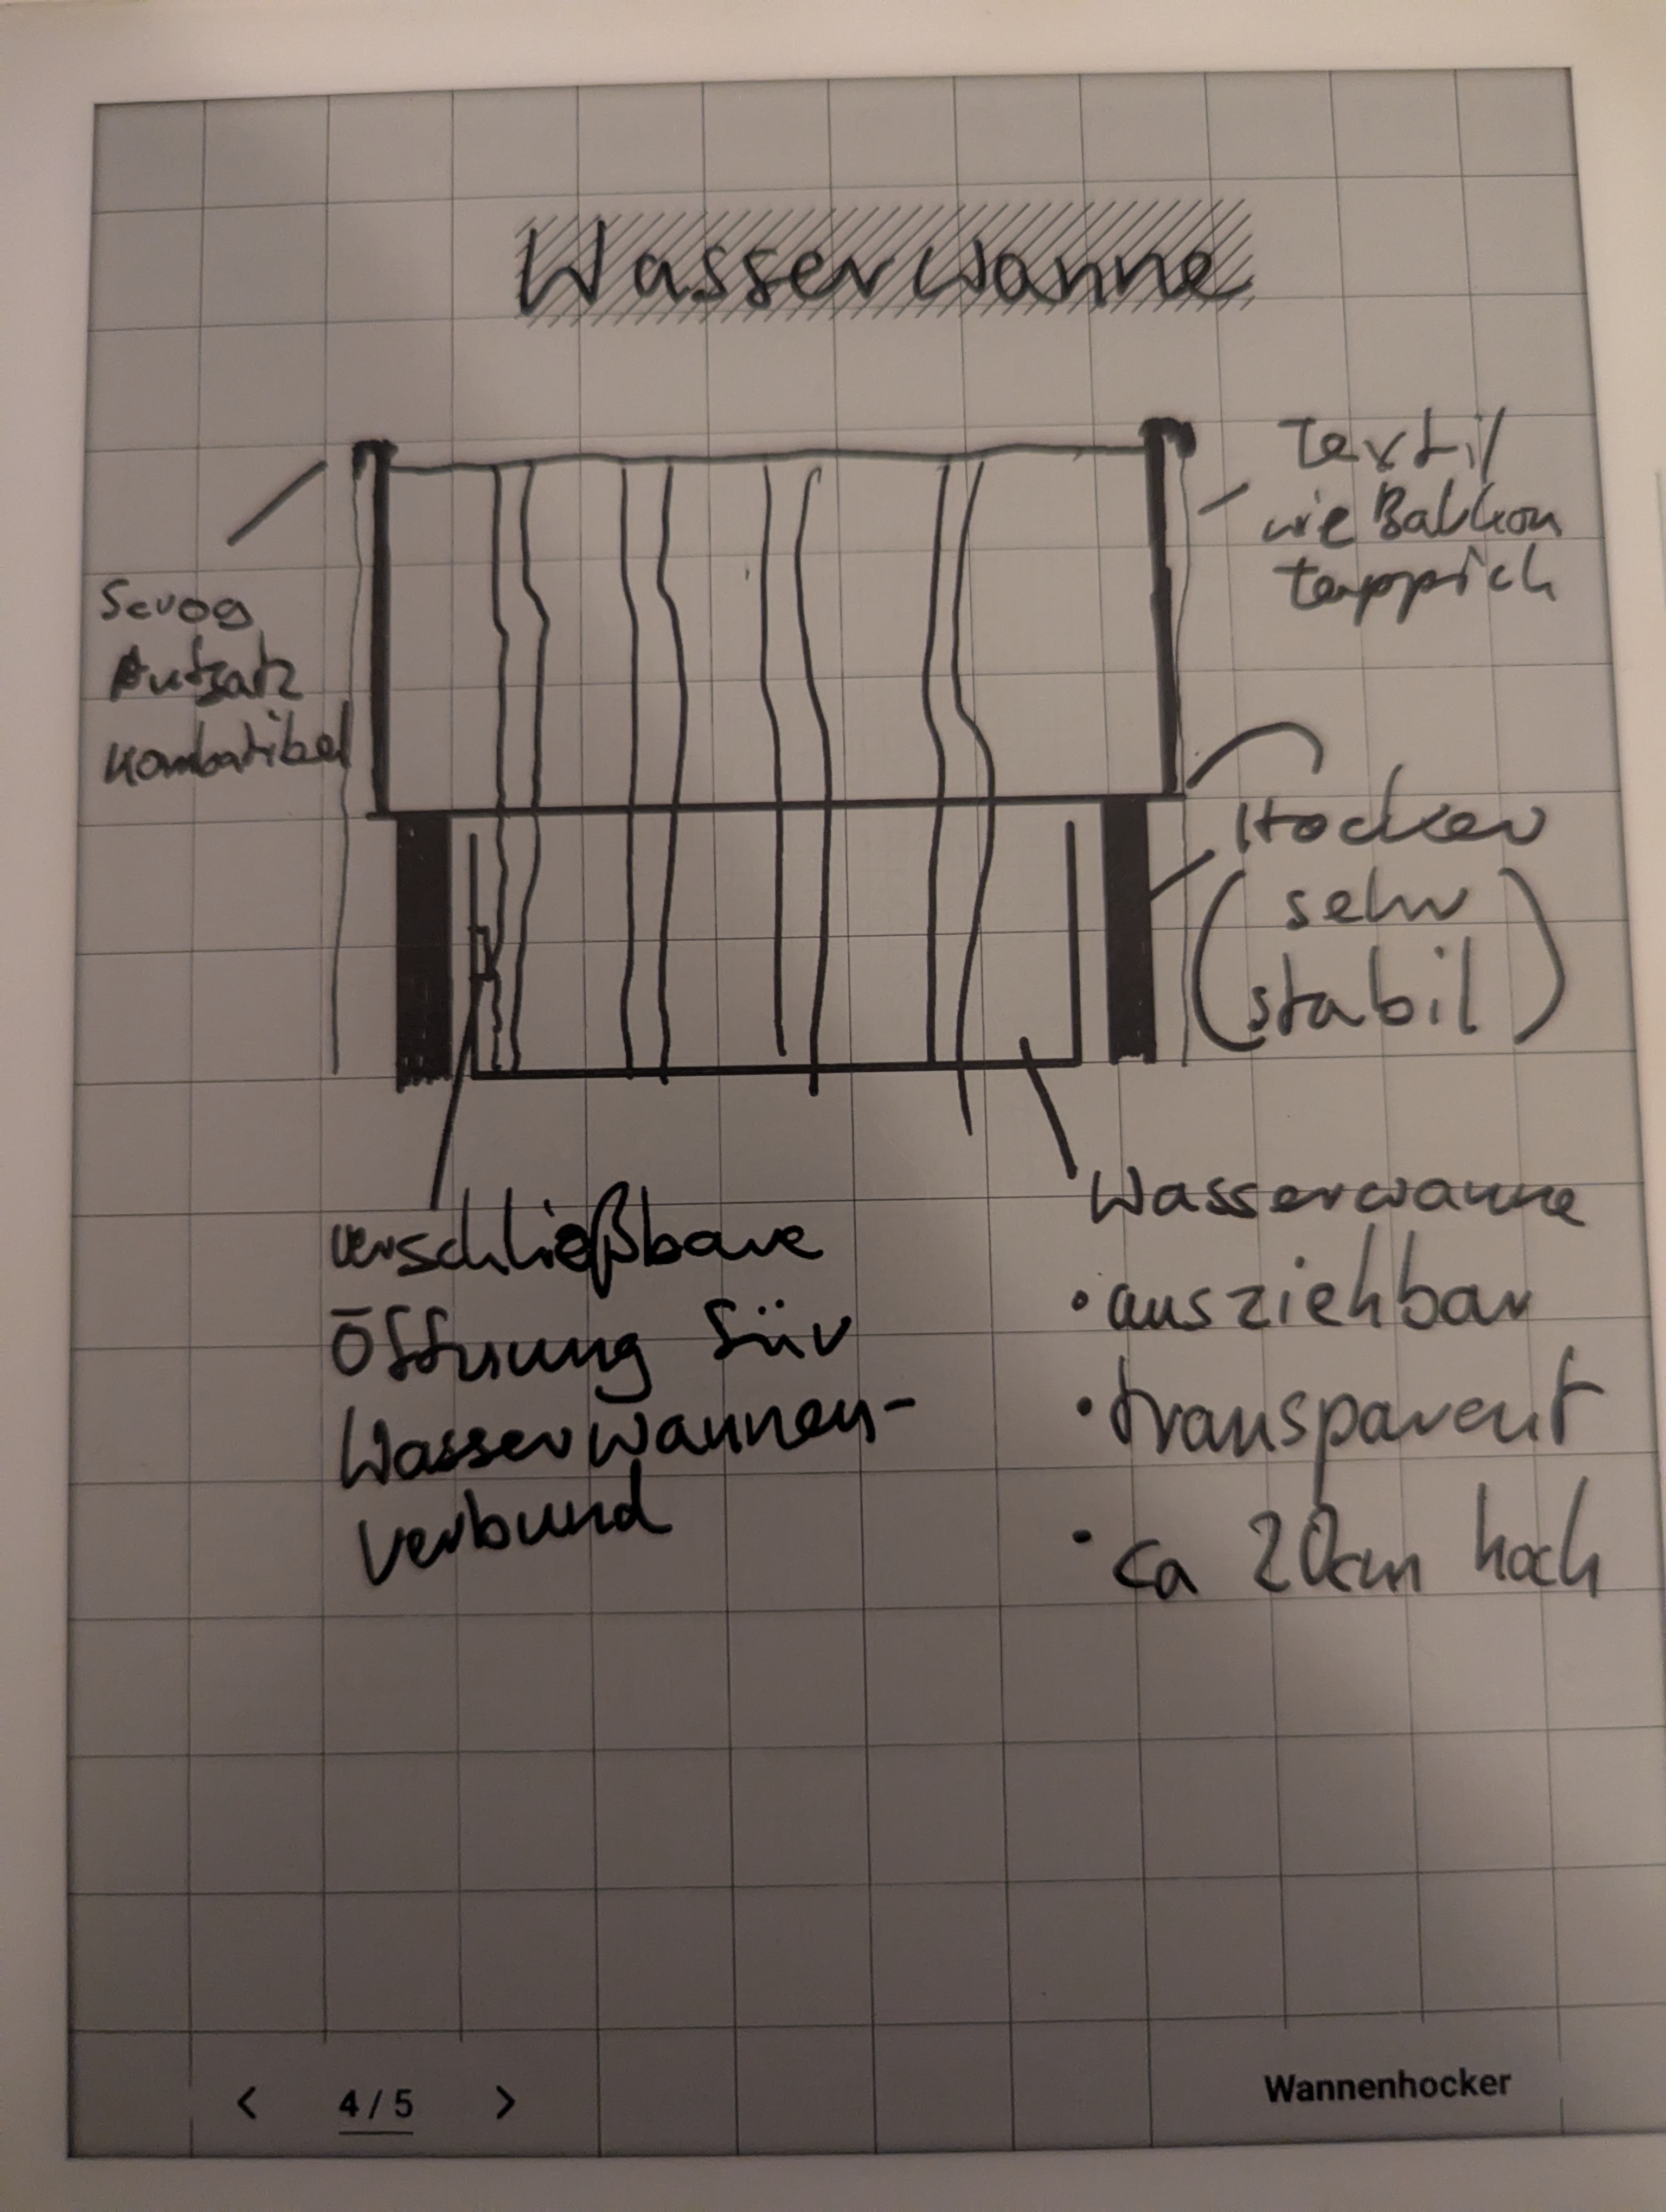 Wasserwanne
Textil
wie Balkon
teppich
Aufsatz
kombatibel
Hocker
(sehr
stabil)
verschließbare
Öffnung für
Wasserwannen-
verbund
Wasserwanne
• ausziehbar
• transparent
• ca 20cm hoch
< 4 / 5 >
Wannenhocker